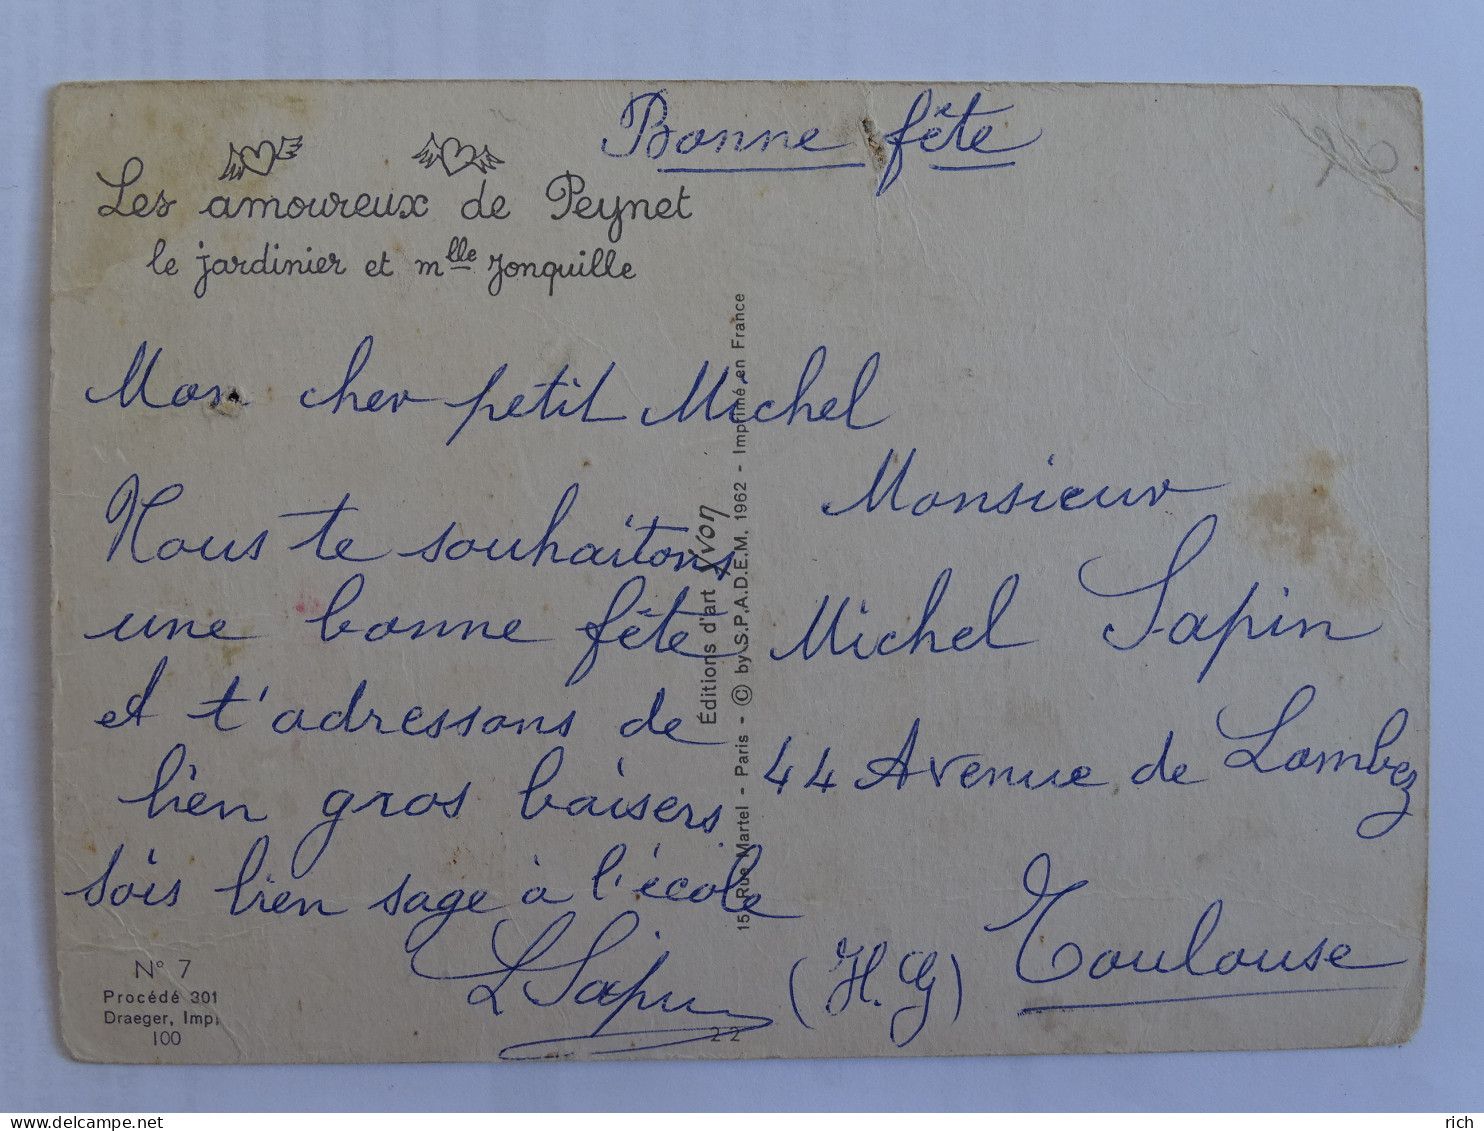 Bonne fête
70
Les amoureux de Peynet
le jardinier et mlle Jonquille
Mon cher petit Michel
Nous te souhaitons
une bonne fête
et t'adressons de
bien gros baisers.
Sois bien sage à l'école
L Sapin
Monsieur
Michel Sapin
44 Avenue de Lombez
Toulouse
(H.G)
Editions d'art Yvon
15, Rue Martel - Paris - © by S.P.A.D.E.M. 1962 - Imprimé en France
N° 7
Procédé 301
Draeger, Imp
100
22
www.delcampe.net
rich